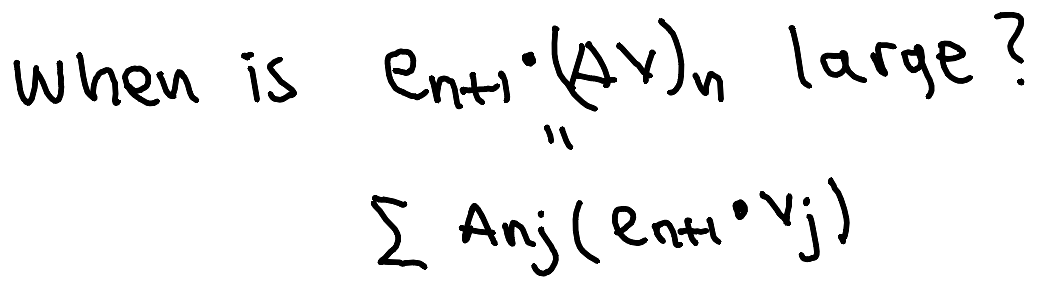 When is e_{n+1}·(AV)_n large?
"
∑ A_{nj}(e_{n+1}·v_j)